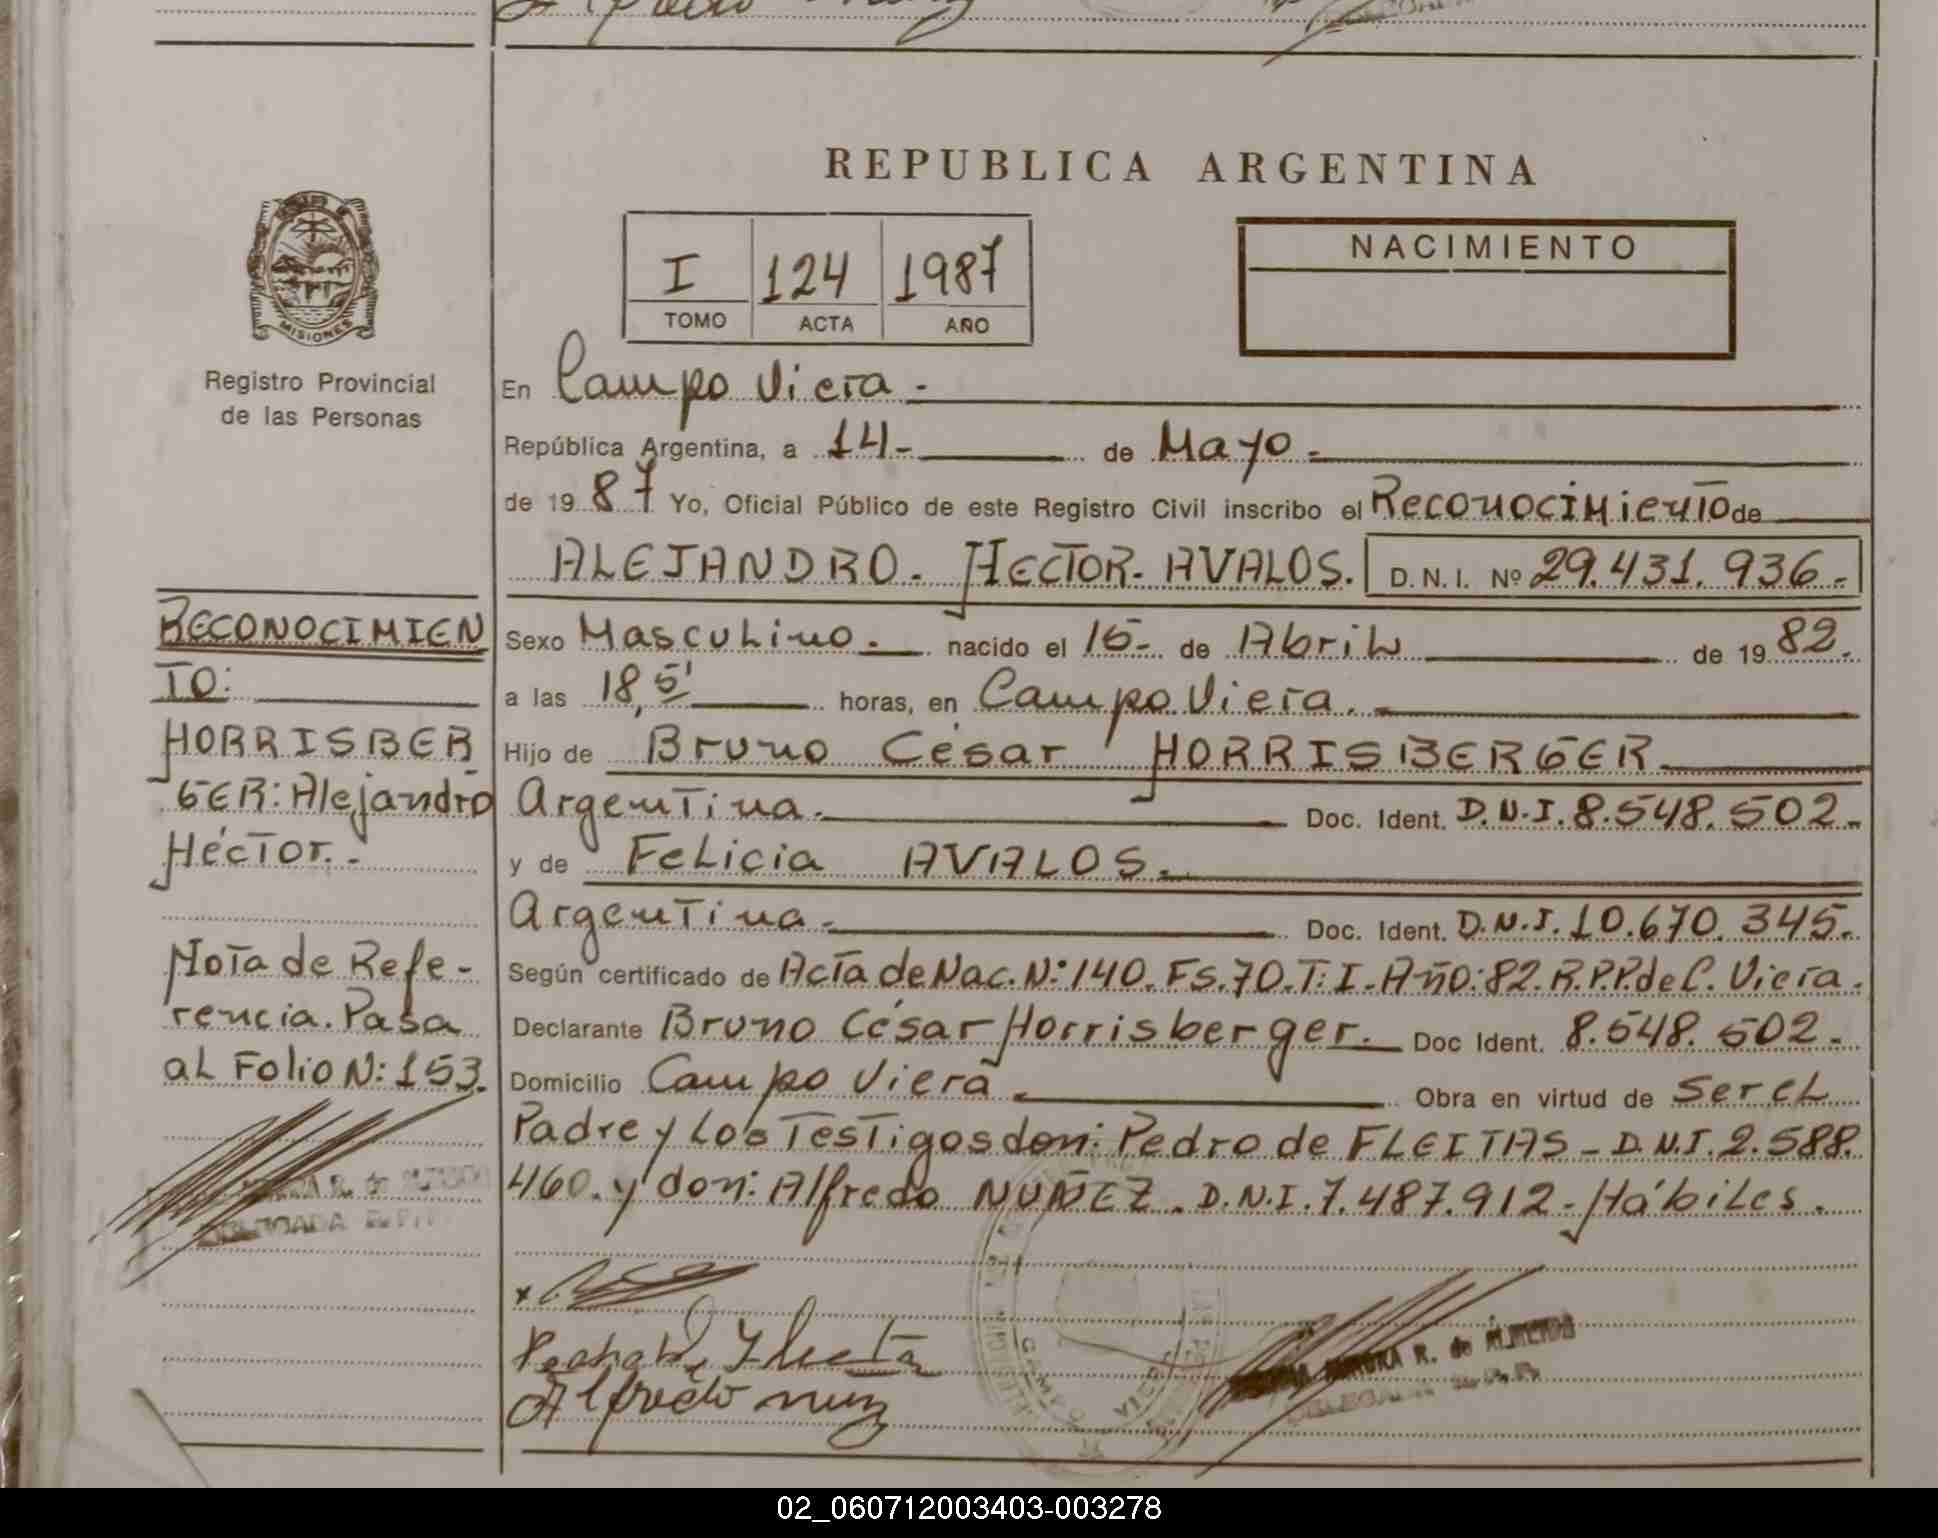 REPUBLICA ARGENTINA
I 124 1987
TOMO ACTA AÑO
NACIMIENTO
MISIONES
Registro Provincial
de las Personas
En Campo Viera.-
República Argentina, a 14- de Mayo.-
de 19 87 Yo, Oficial Público de este Registro Civil inscribo el Reconocimiento de
ALEJANDRO. HECTOR. AVALOS. D.N.I. Nº 29.431.936.-
Sexo Masculino.- nacido el 15- de Abril de 19 82.
a las 18,5' horas, en Campo Viera.-
Hijo de Bruno César HORRISBERGER
Argentina.- Doc. Ident. D.N.I. 8.548.502.-
y de Felicia AVALOS.-
Argentina.- Doc. Ident. D.N.I. 10.670.345.-
Según certificado de Acta de Nac. Nº 140. Fs. 70. T: I. Año: 82. R.P.P. de C. Viera.
Declarante Bruno César Horrisberger. Doc Ident. 8.548.502.-
Domicilio Campo Viera Obra en virtud de ser el
Padre y Los Testigos don: Pedro de FLEITAS - D.N.I. 2.588.
460. y don: Alfredo NUÑEZ. D.N.I. 7.487.912.- Hábiles.
RECONOCIMIEN
TO:
HORRISBER
GER: Alejandro
Héctor.-
Nota de Refe-
rencia. Pasa
al Folio N: 153.
R. de
Alfredo
R. de ALMEIDA
02_060712003403-003278